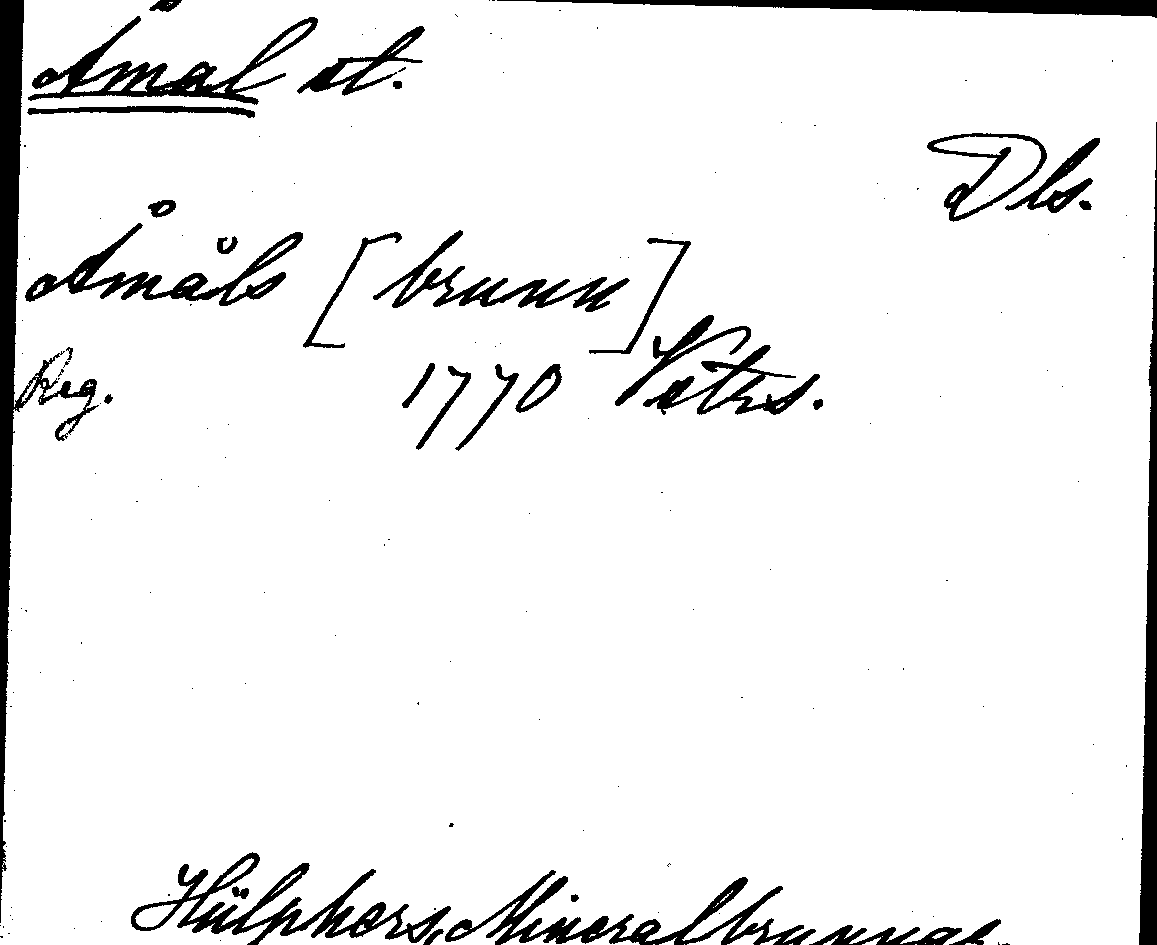 Åmål st.
Dls.
Åmåls [brunn]
Reg. 1770 Vetks.
Hülphers, Mineralbrunnar